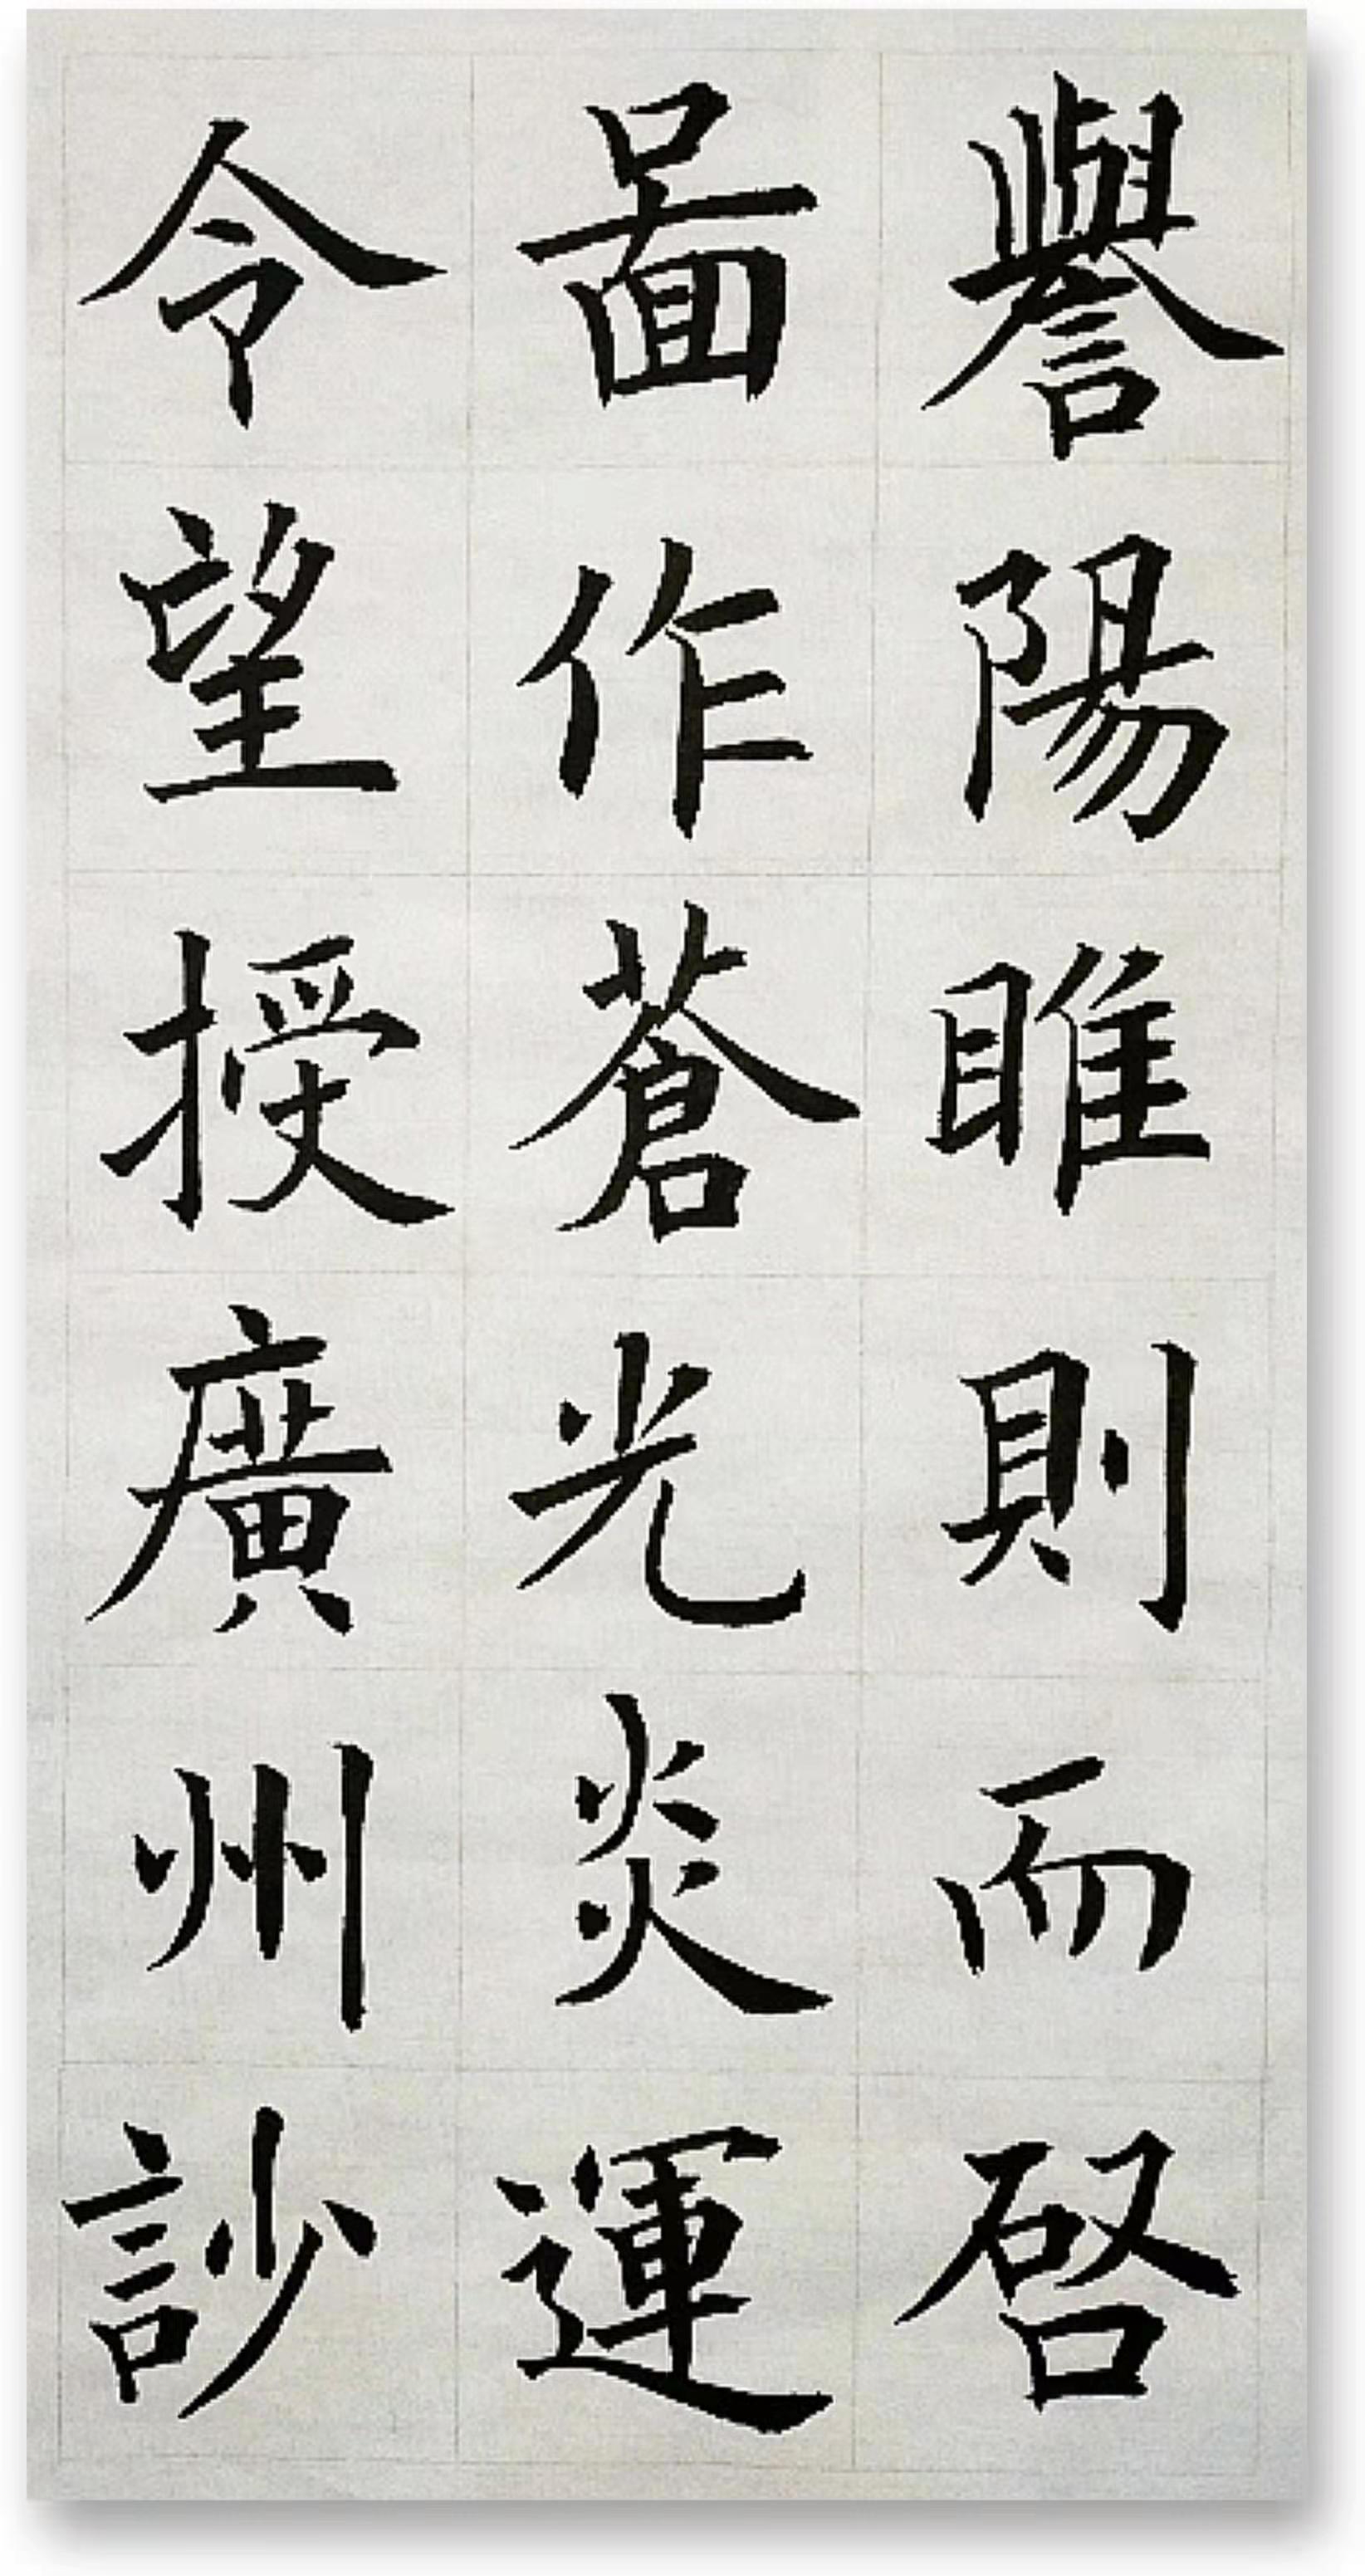 譽陽睢則而啓
啚作蒼光炎運
令望授廣州訬